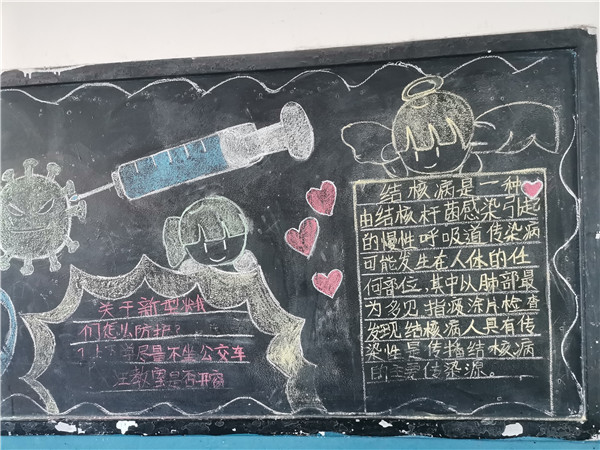 关于新型
们怎么防护?
尽量不坐公交车
注教室是否开窗
结核病是一种
由结核杆菌感染引起
的慢性呼吸道传染病
可能发生在人体的任
何部位,其中从肺部最
为多见,指痰涂片检查
发现结核病人具有传
染性是传播结核病
的主要传染源。